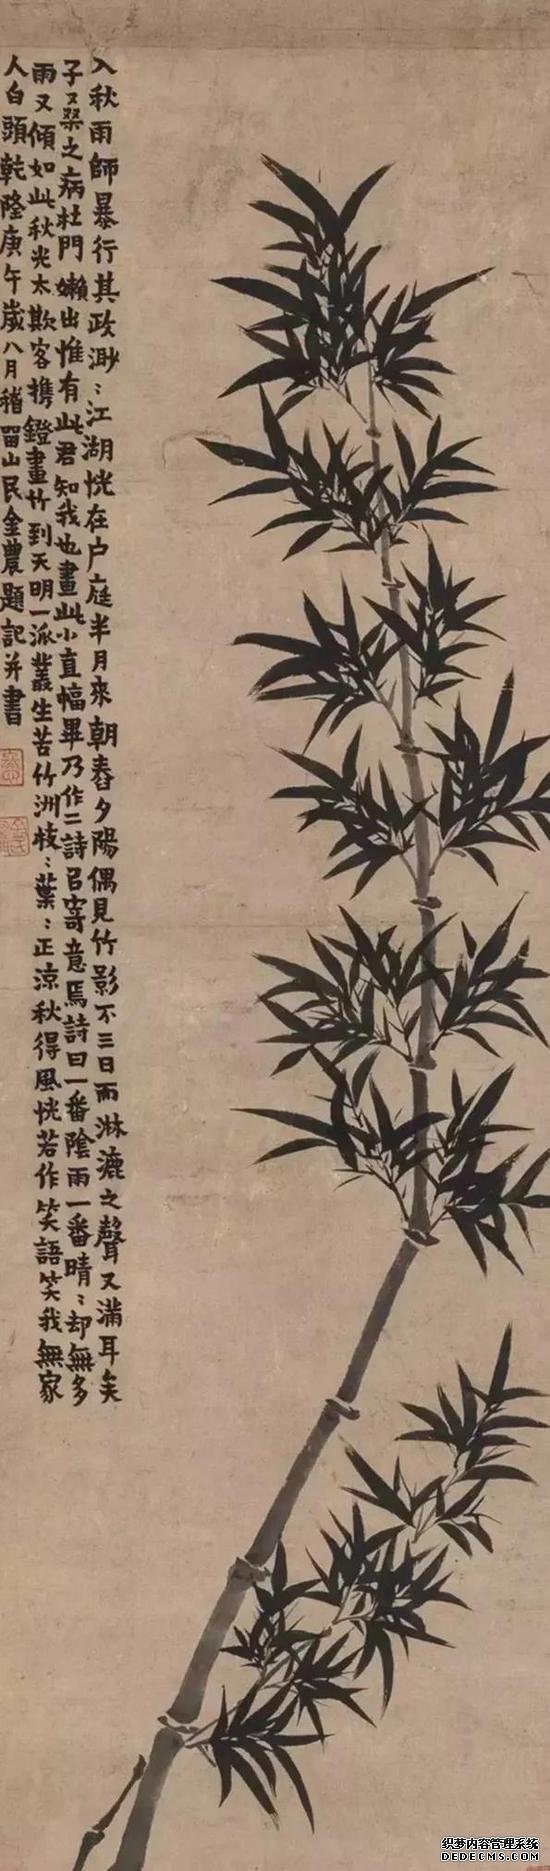 入秋雨師暴行其政渺ミ江湖恍在户庭半月來朝春夕陽偶見竹影不三日而淋漉之聲又滿耳矣
子又桑之病杜門嬾出惟有此君知我也畫此小直幅畢乃作二詩呂寄意焉詩曰一番陰雨一番晴ミ却無多
雨又傾如此秋光太欺客携鐙畫竹到天明一派叢生苦竹洲枝ミ葉ミ正涼秋得風恍若作笑語笑我無家
人白頭乾隆庚午歲八月稽留山民金農題記并書
织梦内容管理系统
DEDECMS.COM